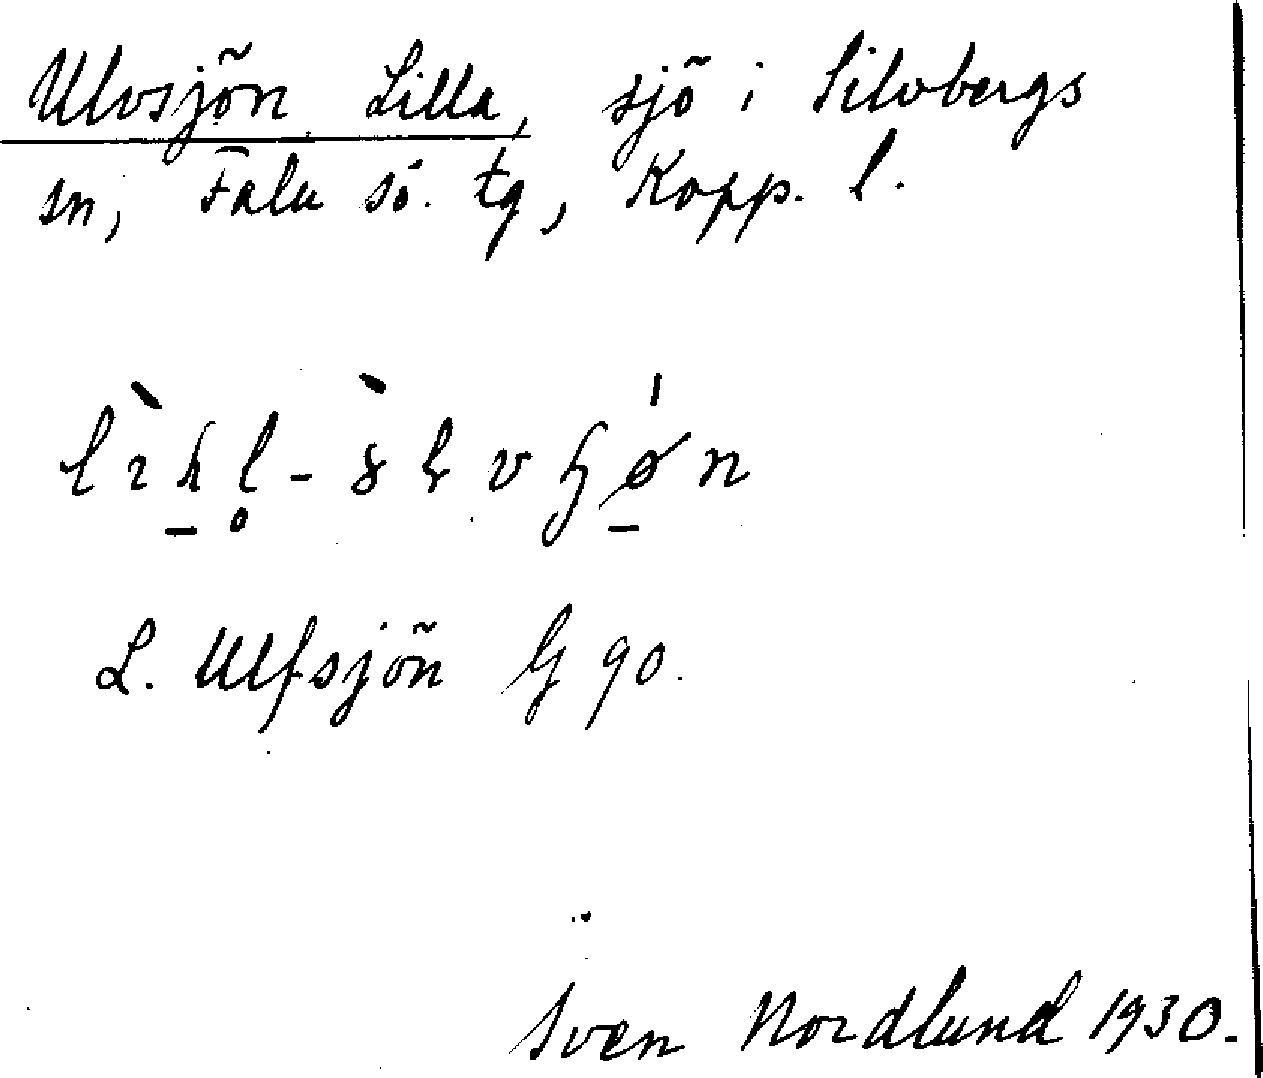 Ulvsjön Lilla, sjö i Silvbergs
sn, Falu sö. tg, Kopp. l.
L. Ulfsjön G 90.
Sven Nordlund 1930.